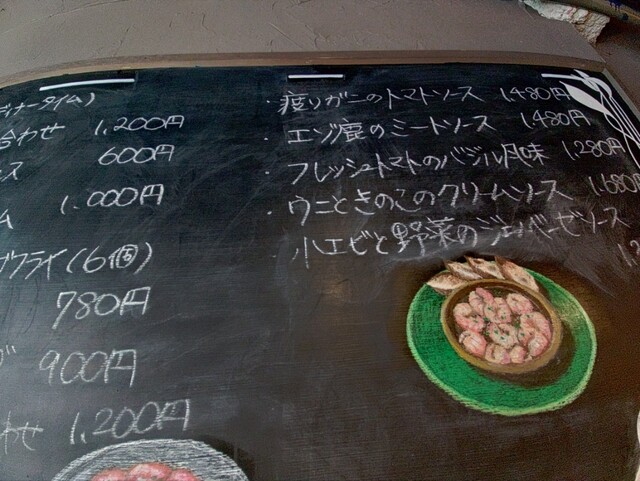 ィナータイム)
合わせ 1,200円
ス 600円
ム 1,000円
フライ(6個)
780円
900円
わせ 1,200円
・渡りガニのトマトソース 1,480円
・エゾ鹿のミートソース 1,480円
・フレッシュトマトのバジル風味 1,280円
・ウニときのこのクリームソース 1,680円
・小エビと野菜のジェノベーゼソース